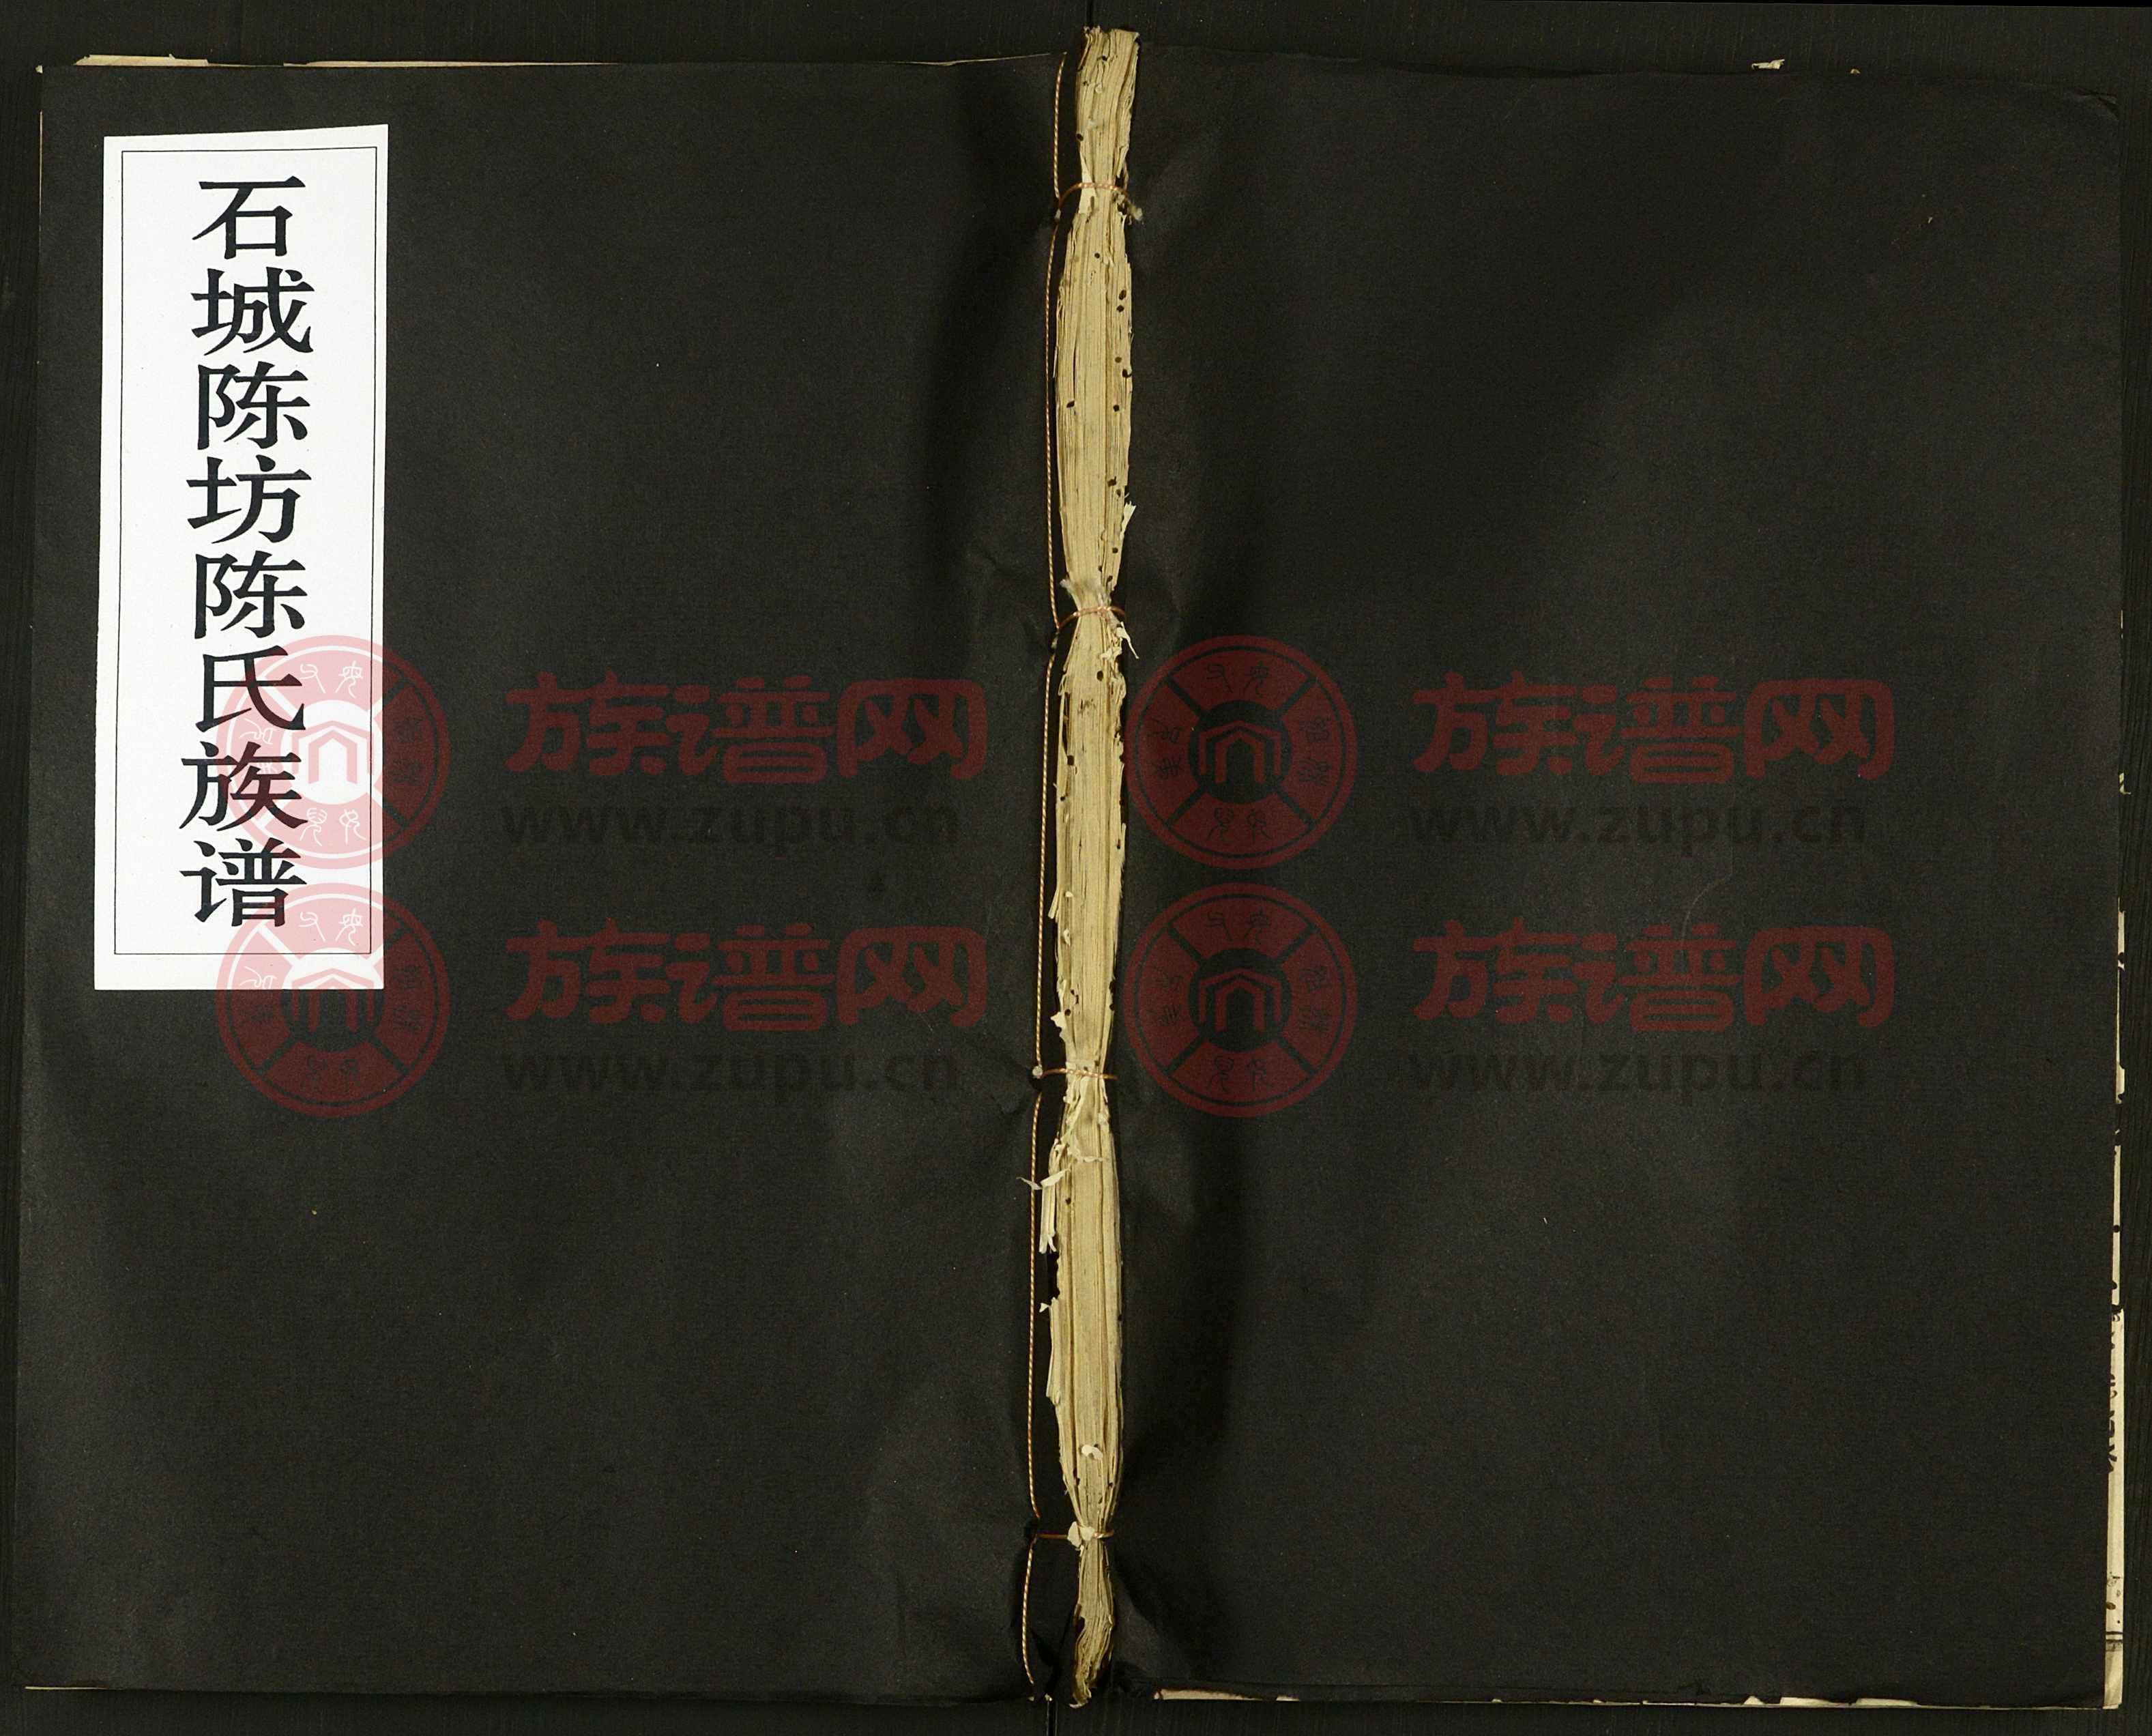 石城陈坊陈氏族谱
族谱网
www.zupu.cn
族谱网
www.zupu.cn
族谱网
www.zupu.cn
族谱网
www.zupu.cn